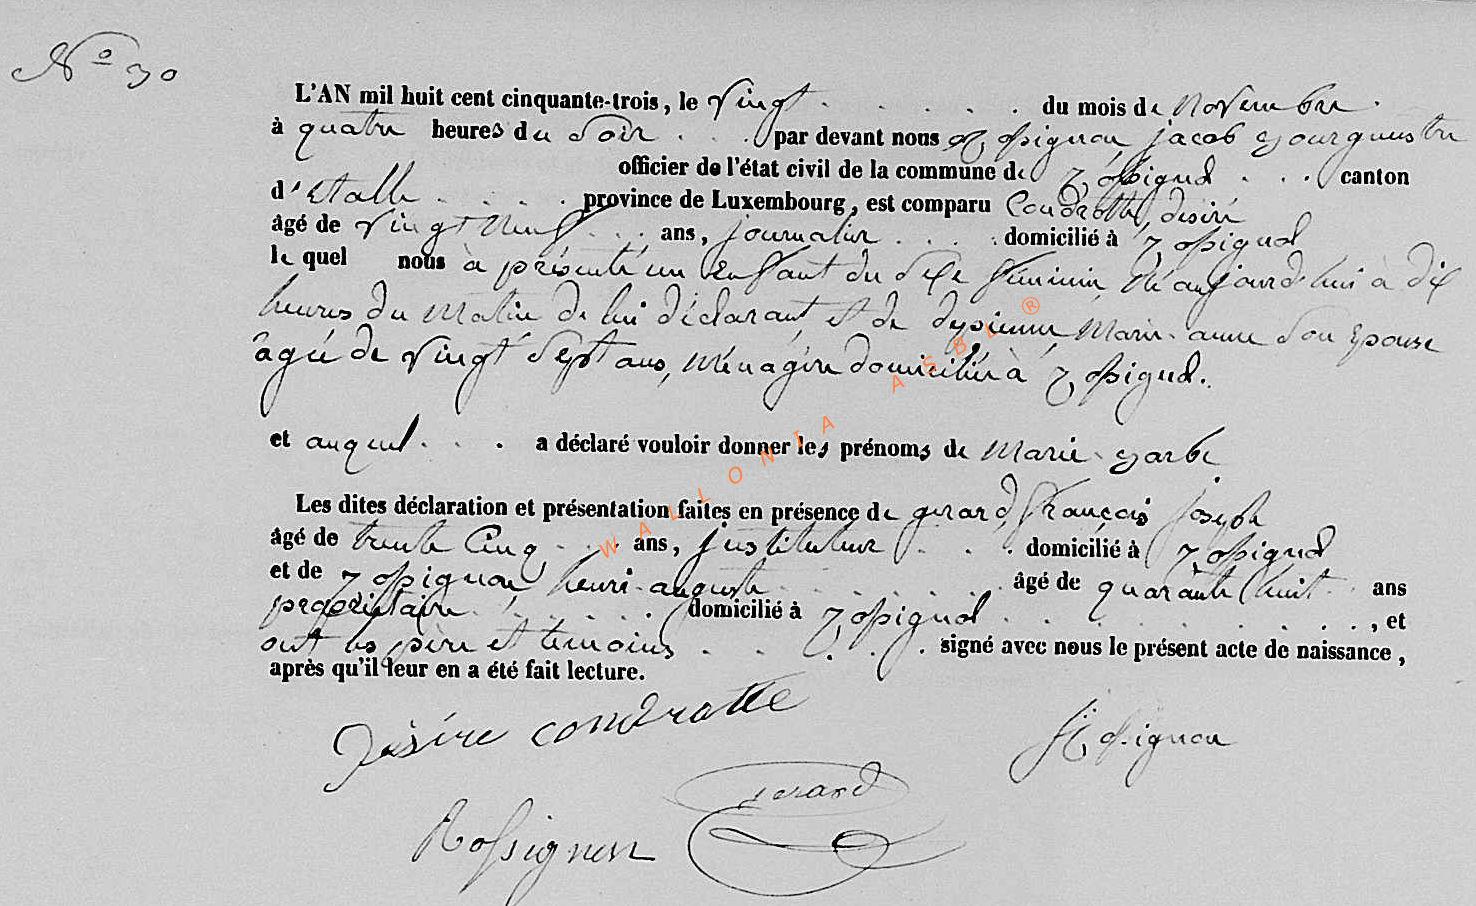 N° 30
L'AN mil huit cent cinquante-trois, le vingt . . . . . du mois de novembre .
à quatre heures du soir . . . par devant nous Rossignon jacob bourguestre
officier de l'état civil de la commune de Rossignol . . . canton
d'Etalle . . . . province de Luxembourg, est comparu Condrotte, désiré
âgé de vingt neuf . . . ans, journalier . . . . domicilié à Rossignol
le quel nous à présenté un enfant du sexe féminin, né aujourd'hui à dix
heures du matin de lui déclarant, et de Marie-anne son épouse
âgée de vingt sept ans, ménagère domiciliée à Rossignol.
et auquel . . . a déclaré vouloir donner les prénoms de Marie-barbe
Les dites déclaration et présentation faites en présence de gerard, françois joseph
âgé de trente cinq . . . ans, justituteur . . . . domicilié à Rossignol
et de Rossignon henri-auguste . . . . . . . . âgé de quarante huit . . ans
propriétaire . . . . . domicilié à Rossignol . . . . . . . . . , et
ont les père et témoins . . . . . signé avec nous le présent acte de naissance,
après qu'il leur en a été fait lecture.
Désire condrotte
Rossignon
gerard
Rossignon
WALLONIA ASBL ®